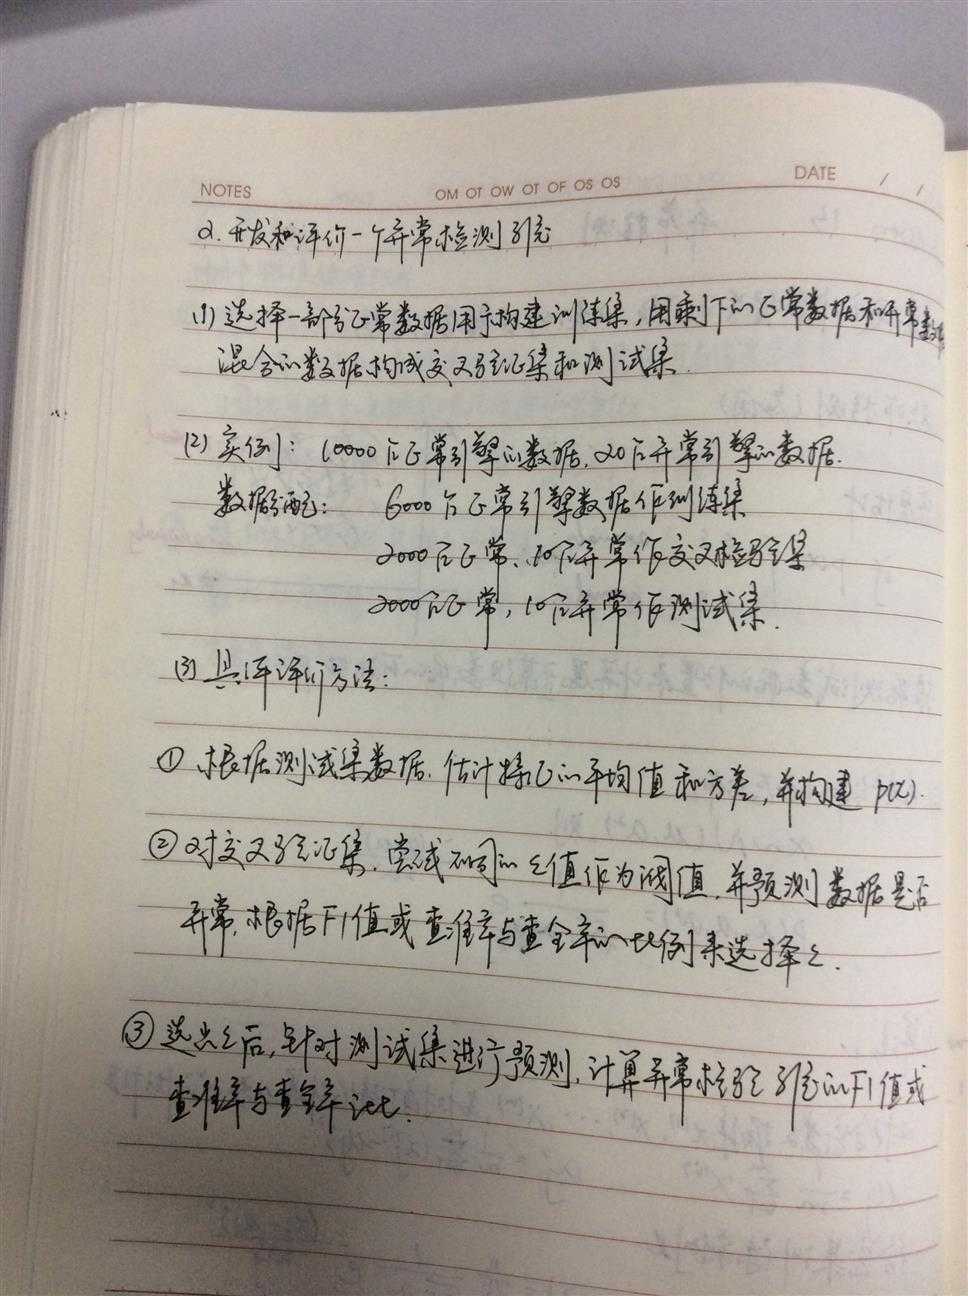 NOTES OM OT OW OT OF OS OS DATE / /
2. 开发和评价一个异常检测系统
(1) 选择一部分正常数据用于构建训练集，用剩下的正常数据和异常数据
混合的数据构成交叉验证集和测试集.
(2) 实例： 10000个正常引擎的数据, 20个异常引擎的数据.
数据分配： 6000个正常引擎数据作训练集
2000个正常、10个异常作交叉检验集
2000个正常，10个异常作测试集.
(3) 具体评价方法：
① 根据测试集数据, 估计特征的平均值和方差，并构建 p(x).
② 对交叉验证集, 尝试不同的 ε值作为阈值, 并预测数据是否
异常, 根据F1值或查准率与查全率的比例来选择ε.
③ 选出ε后, 针对测试集进行预测, 计算异常检验系统的F1值或
查准率与查全率之比.